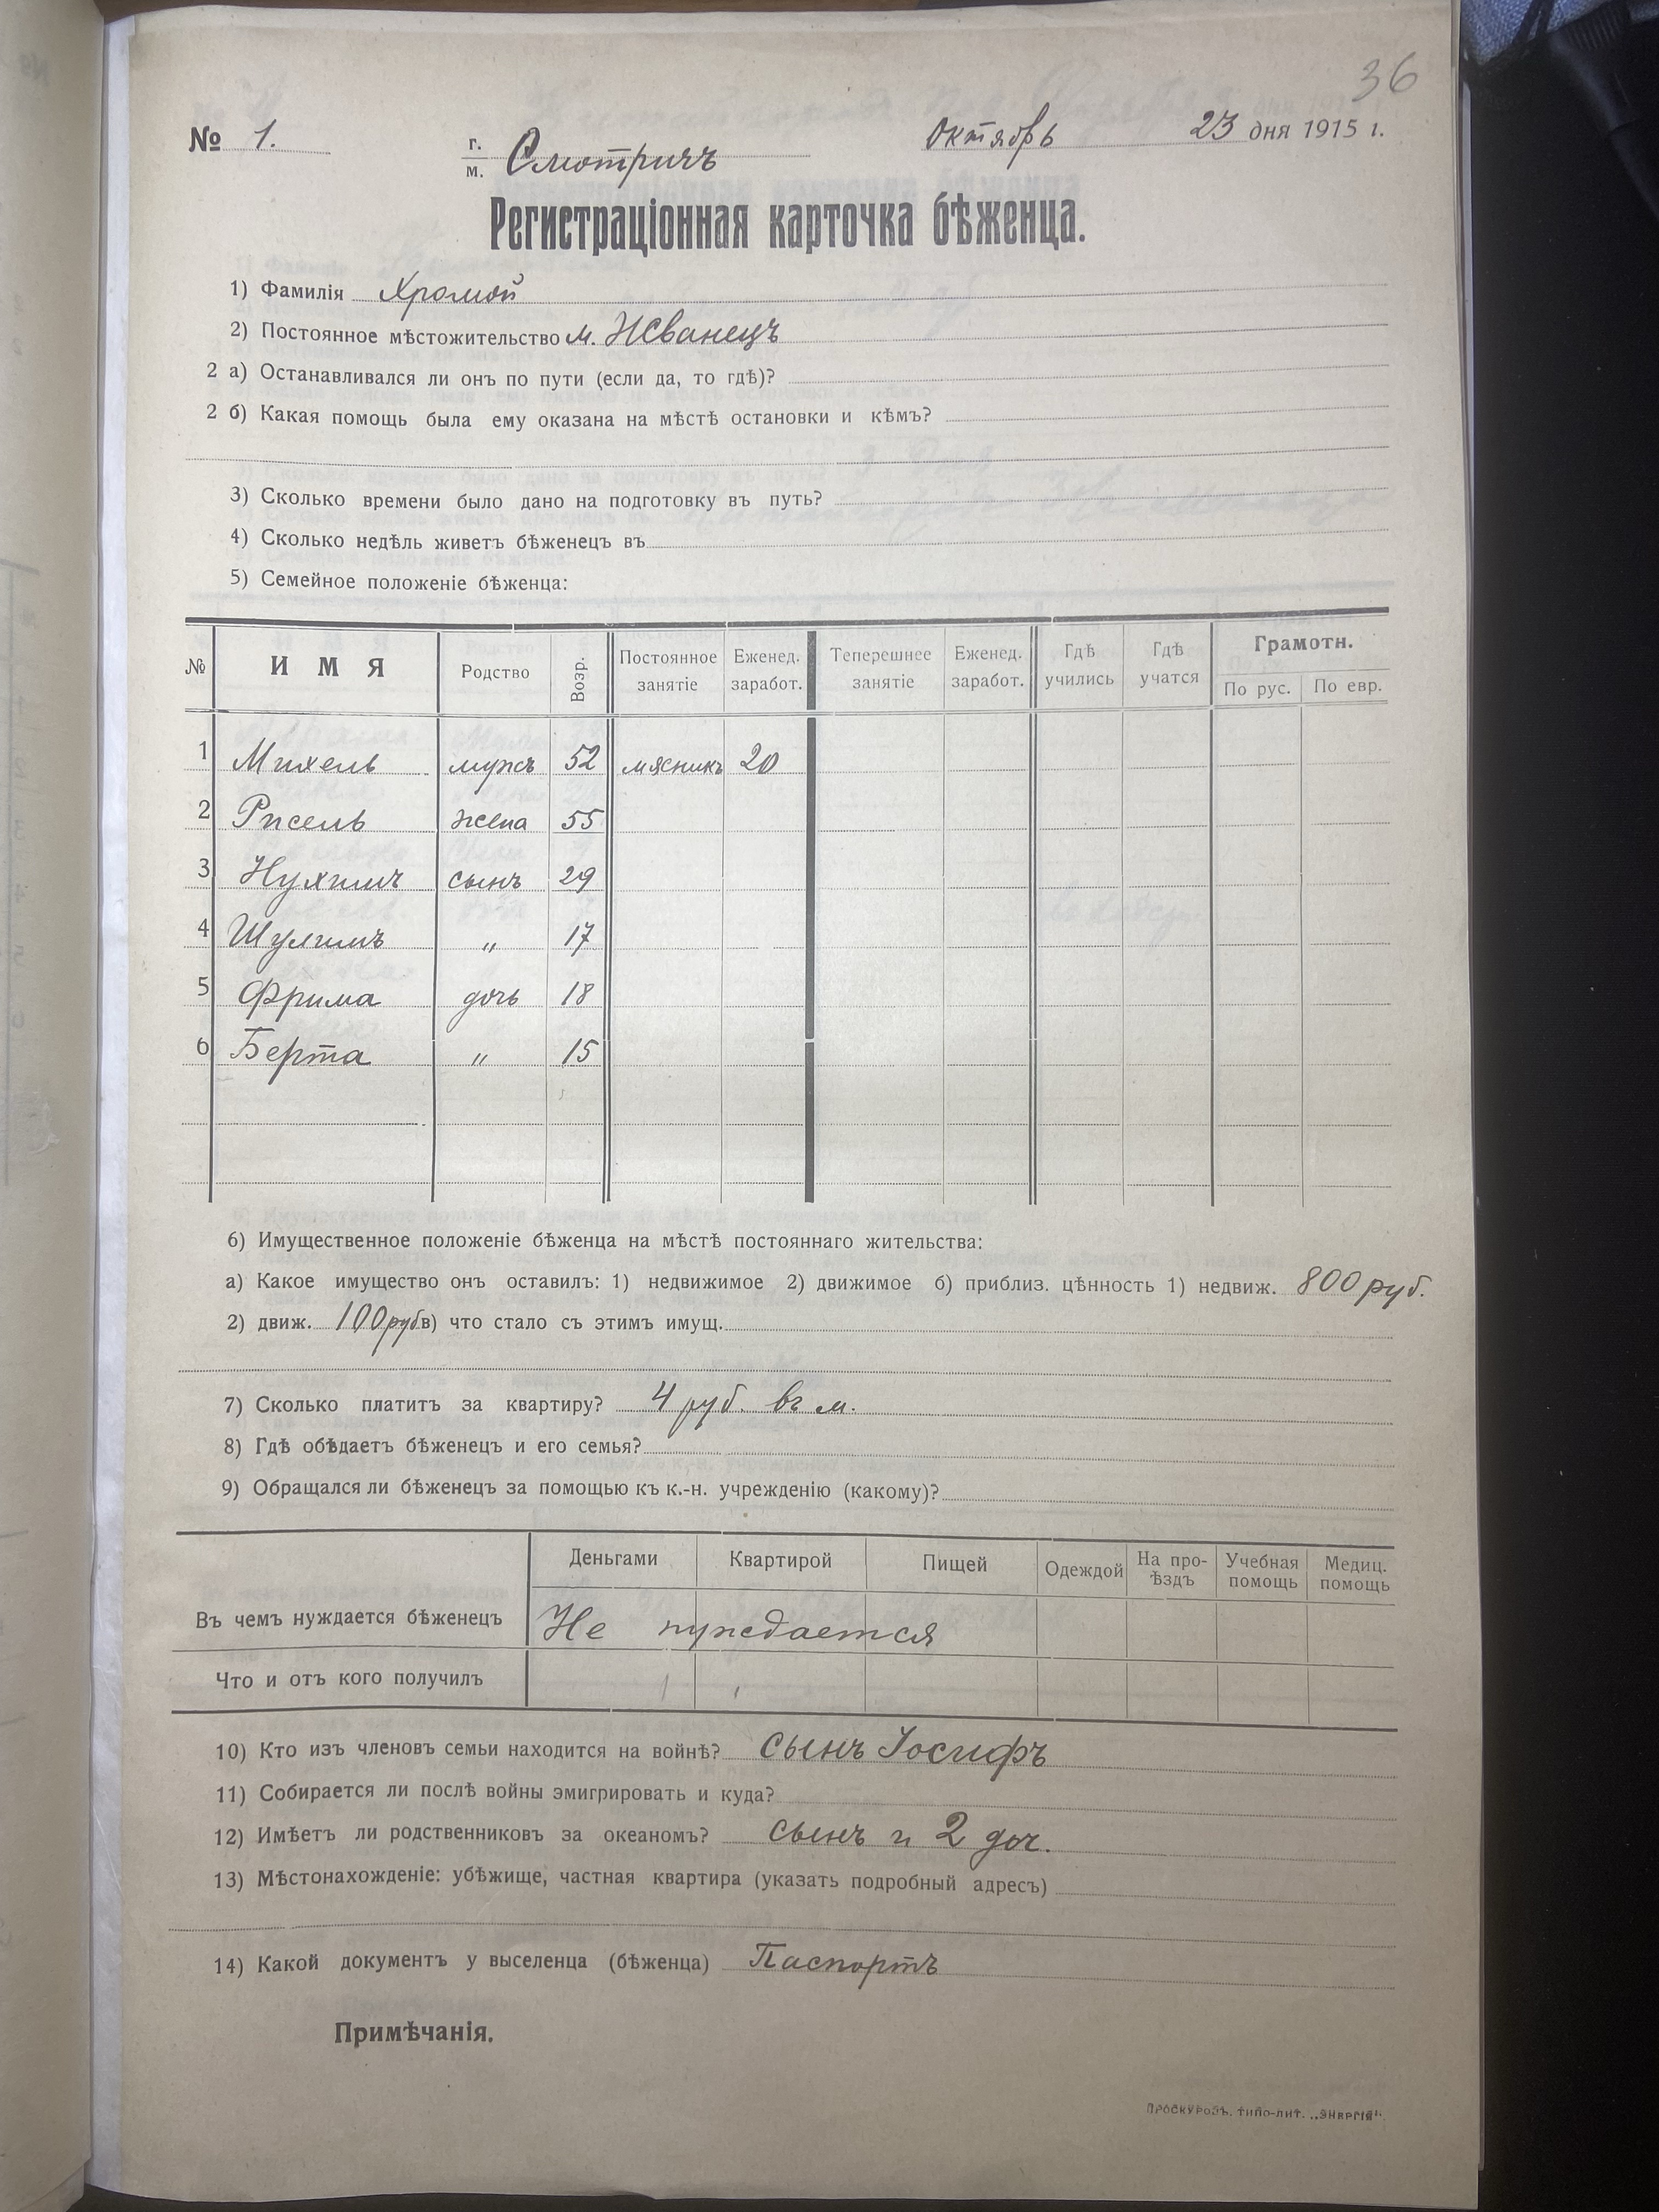 36
№ 1. г./м. Смотричъ Октябрь 23 дня 1915 г.
Регистраціонная карточка бѣженца.
1) Фамилія Хромой
2) Постоянное мѣстожительство м. Жванецъ
2 а) Останавливался ли онъ по пути (если да, то гдѣ)?
2 б) Какая помощь была ему оказана на мѣстѣ остановки и кѣмъ?
3) Сколько времени было дано на подготовку въ путь?
4) Сколько недѣль живетъ бѣженецъ въ
5) Семейное положеніе бѣженца:
№ ИМЯ Родство Возр. Постоянное занятіе Еженед. заработ. Теперешнее занятіе Еженед. заработ. Гдѣ учились Гдѣ учатся Грамотн. По рус. По евр.
1 Михель мужъ 52 мясникъ 20
2 Рисель жена 55
3 Нухимъ сынъ 29
4 Шулимъ " 17
5 Фрима дочь 18
6 Берта " 15
6) Имущественное положеніе бѣженца на мѣстѣ постояннаго жительства:
а) Какое имущество онъ оставилъ: 1) недвижимое 2) движимое б) приблиз. цѣнность 1) недвиж. 800 руб.
2) движ. 100 руб в) что стало съ этимъ имущ.
7) Сколько платитъ за квартиру? 4 руб. въ м.
8) Гдѣ обѣдаетъ бѣженецъ и его семья?
9) Обращался ли бѣженецъ за помощью къ к.-н. учрежденію (какому)?
Деньгами Квартирой Пищей Одеждой На про-ѣздъ Учебная помощь Медиц. помощь
Въ чемъ нуждается бѣженецъ Не нуждается
Что и отъ кого получилъ
10) Кто изъ членовъ семьи находится на войнѣ? сынъ Іосифъ
11) Собирается ли послѣ войны эмигрировать и куда?
12) Имѣетъ ли родственниковъ за океаномъ? сынъ и 2 доч.
13) Мѣстонахожденіе: убѣжище, частная квартира (указать подробный адресъ)
14) Какой документъ у выселенца (бѣженца) Паспортъ
Примѣчанія.
ПРОСКУРОВЪ. ТИПО-ЛИТ. „ЭНЕРГІЯ".